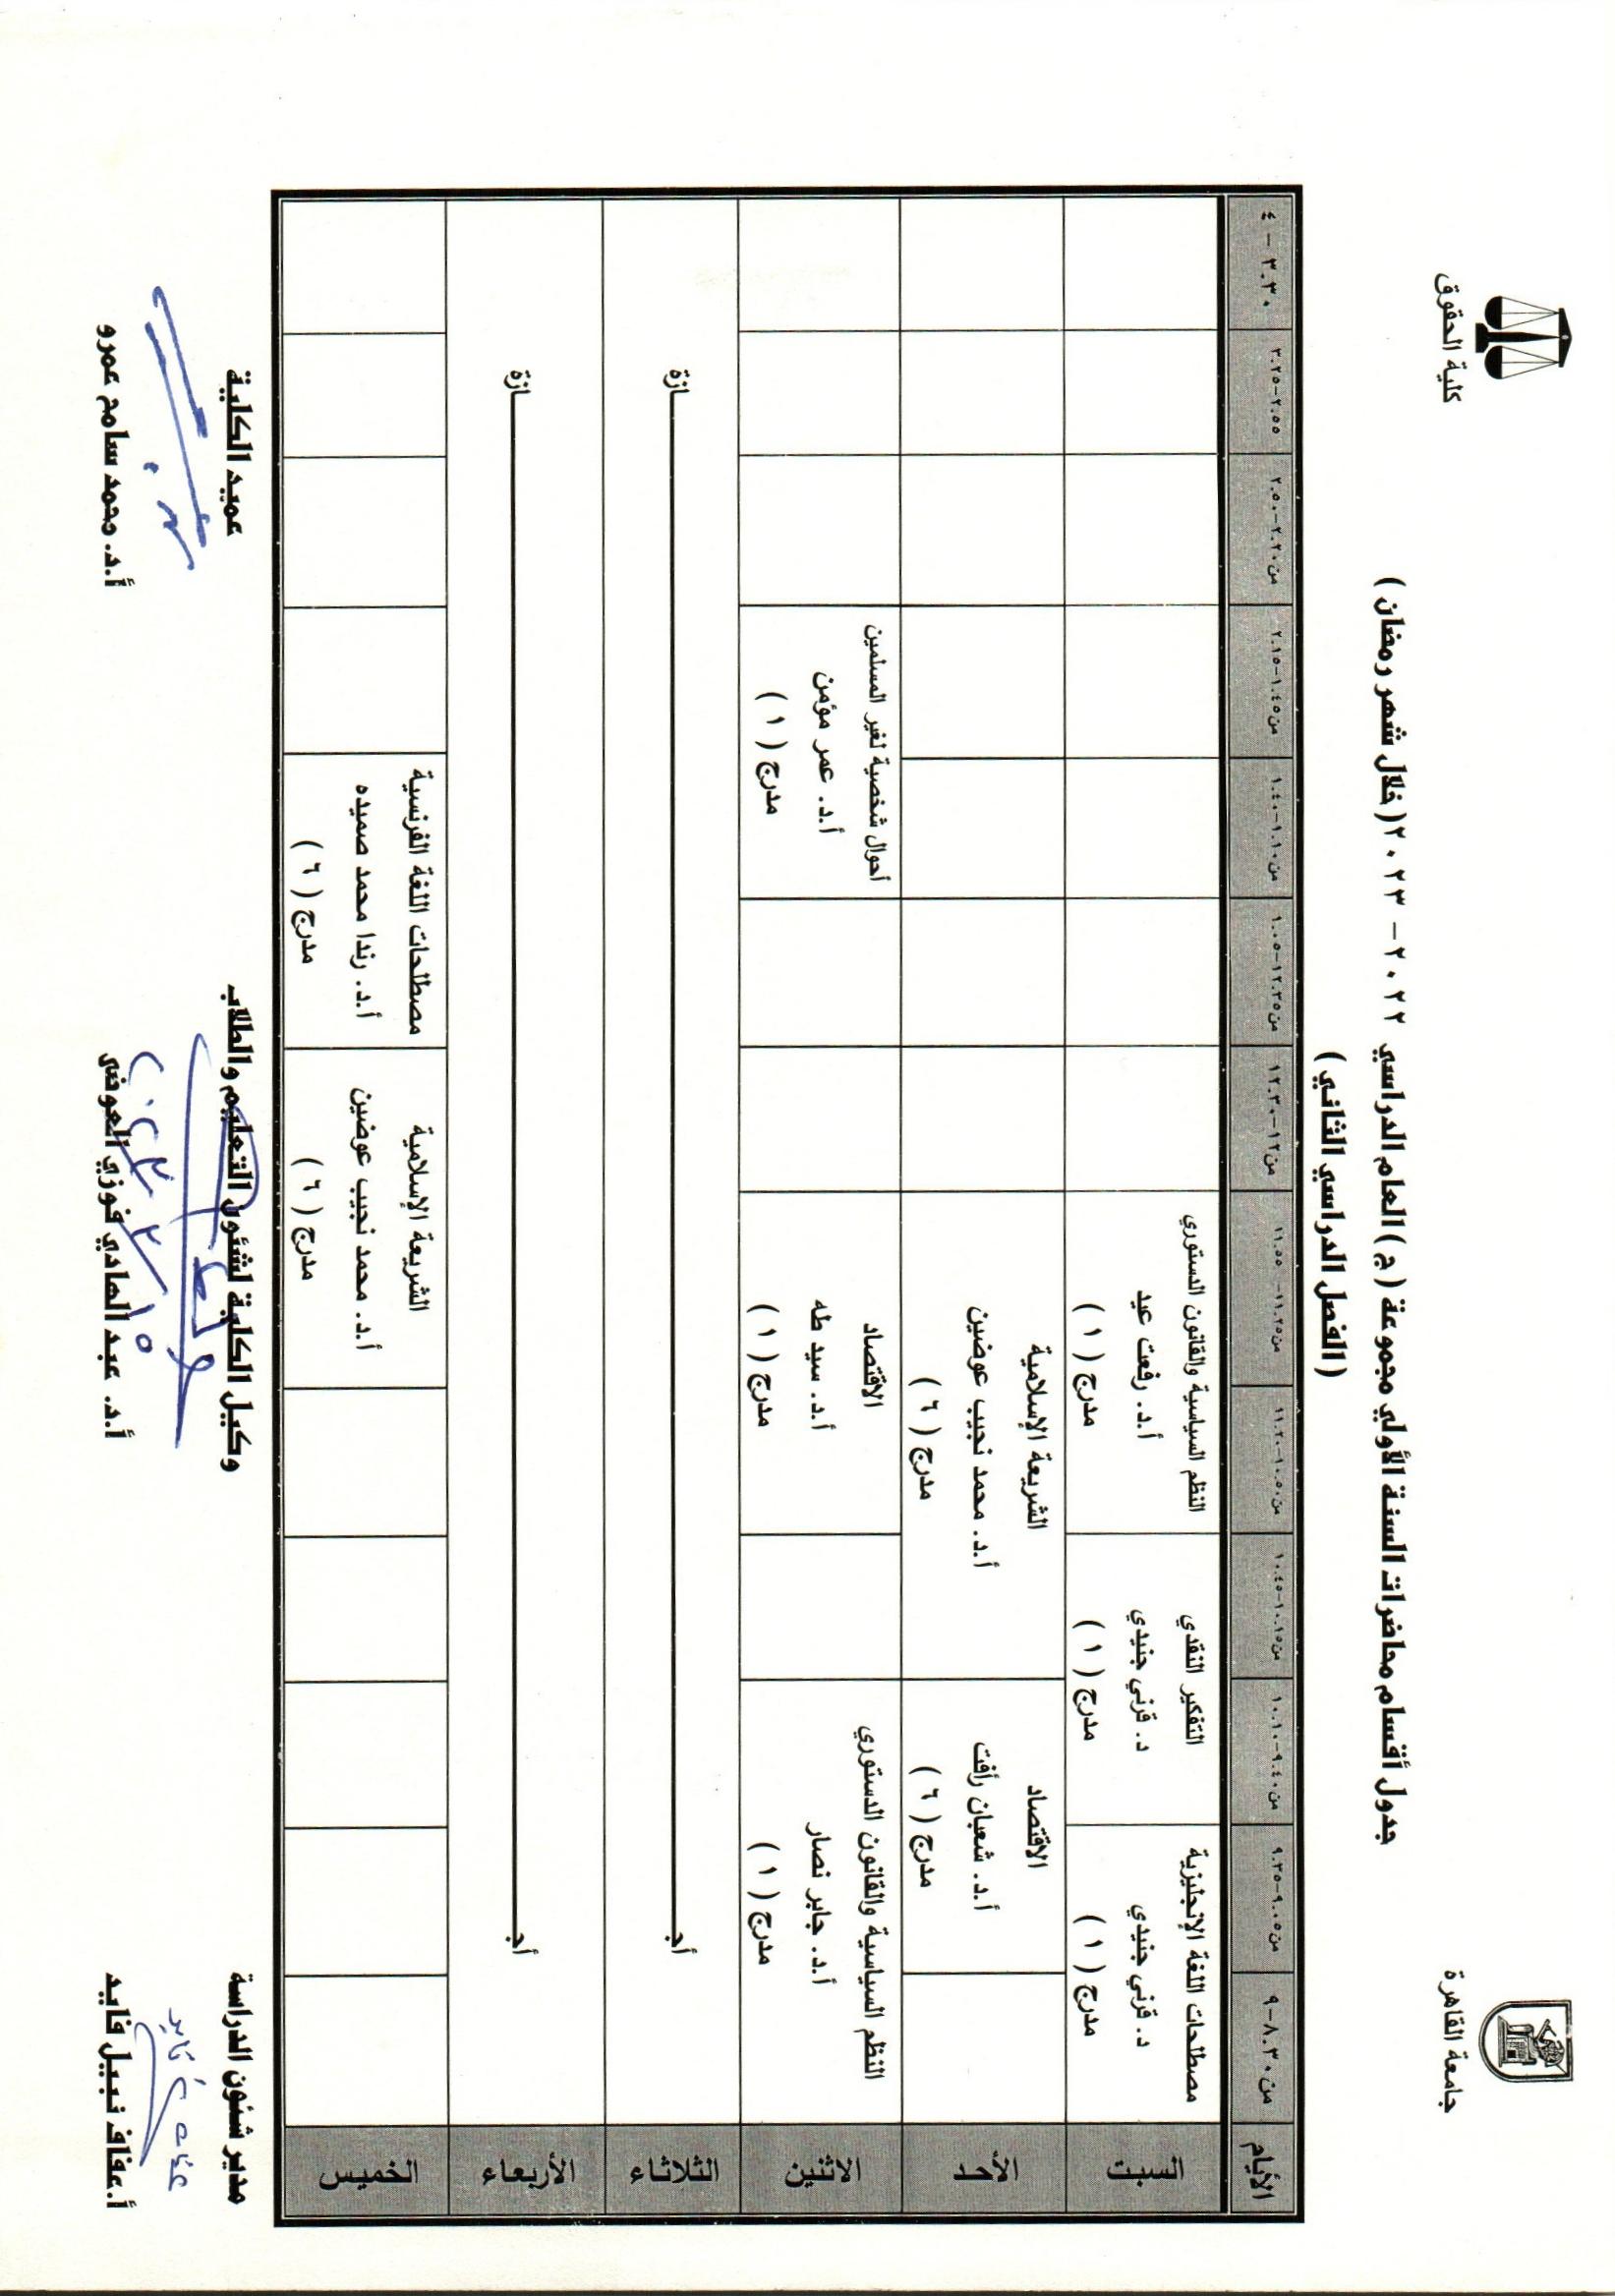 جامعة القاهرة
كلية الحقوق
جدول أقسام محاضرات السنة الأولي مجموعة ( ج ) العام الدراسي ٢٠٢٢ – ٢٠٢٣ ( خلال شهر رمضان )
( الفصل الدراسي الثاني )
الأيام من ٨.٣٠-٩ من ٩.٠٥-٩.٣٥ من ٩.٤٠-١٠.١٠ من ١٠.١٥-١٠.٤٥ من ١٠.٥٠-١١.٢٠ من ١١.٢٥-١١.٥٥ من ١٢-١٢.٣٠ من ١٢.٣٥-١.٠٥ من ١.١٠-١.٤٠ من ١.٤٥-٢.١٥ من ٢.٢٠-٢.٥٠ ٢.٥٥-٣.٢٥ ٣.٣٠ – ٤
السبت
مصطلحات اللغة الإنجليزية
د. قرني جنيدي
مدرج ( ١ )
التفكير النقدي
د. قرني جنيدي
مدرج ( ١ )
النظم السياسية والقانون الدستوري
أ.د. رفعت عيد
مدرج ( ١ )
الأحد
الاقتصاد
أ.د. شعبان رأفت
مدرج ( ٦ )
الشريعة الإسلامية
أ.د. محمد نجيب عوضين
مدرج ( ٦ )
الاثنين
النظم السياسية والقانون الدستوري
أ.د. جابر نصار
مدرج ( ١ )
الاقتصاد
أ.د. سيد طه
مدرج ( ١ )
أحوال شخصية لغير المسلمين
أ.د. عمر مؤمن
مدرج ( ١ )
الثلاثاء
أجـــازة
الأربعاء
أجـــازة
الخميس
الشريعة الإسلامية
أ.د. محمد نجيب عوضين
مدرج ( ٦ )
مصطلحات اللغة الفرنسية
أ.د. رندا محمد صميده
مدرج ( ٦ )
مدير شئون الدراسة
أ.عفاف نبيل فايد
وكيل الكلية لشئون التعليم والطلاب
أ.د. عبد الهادي فوزي العوضي
عميد الكلية
أ.د. محمد سامح عمرو